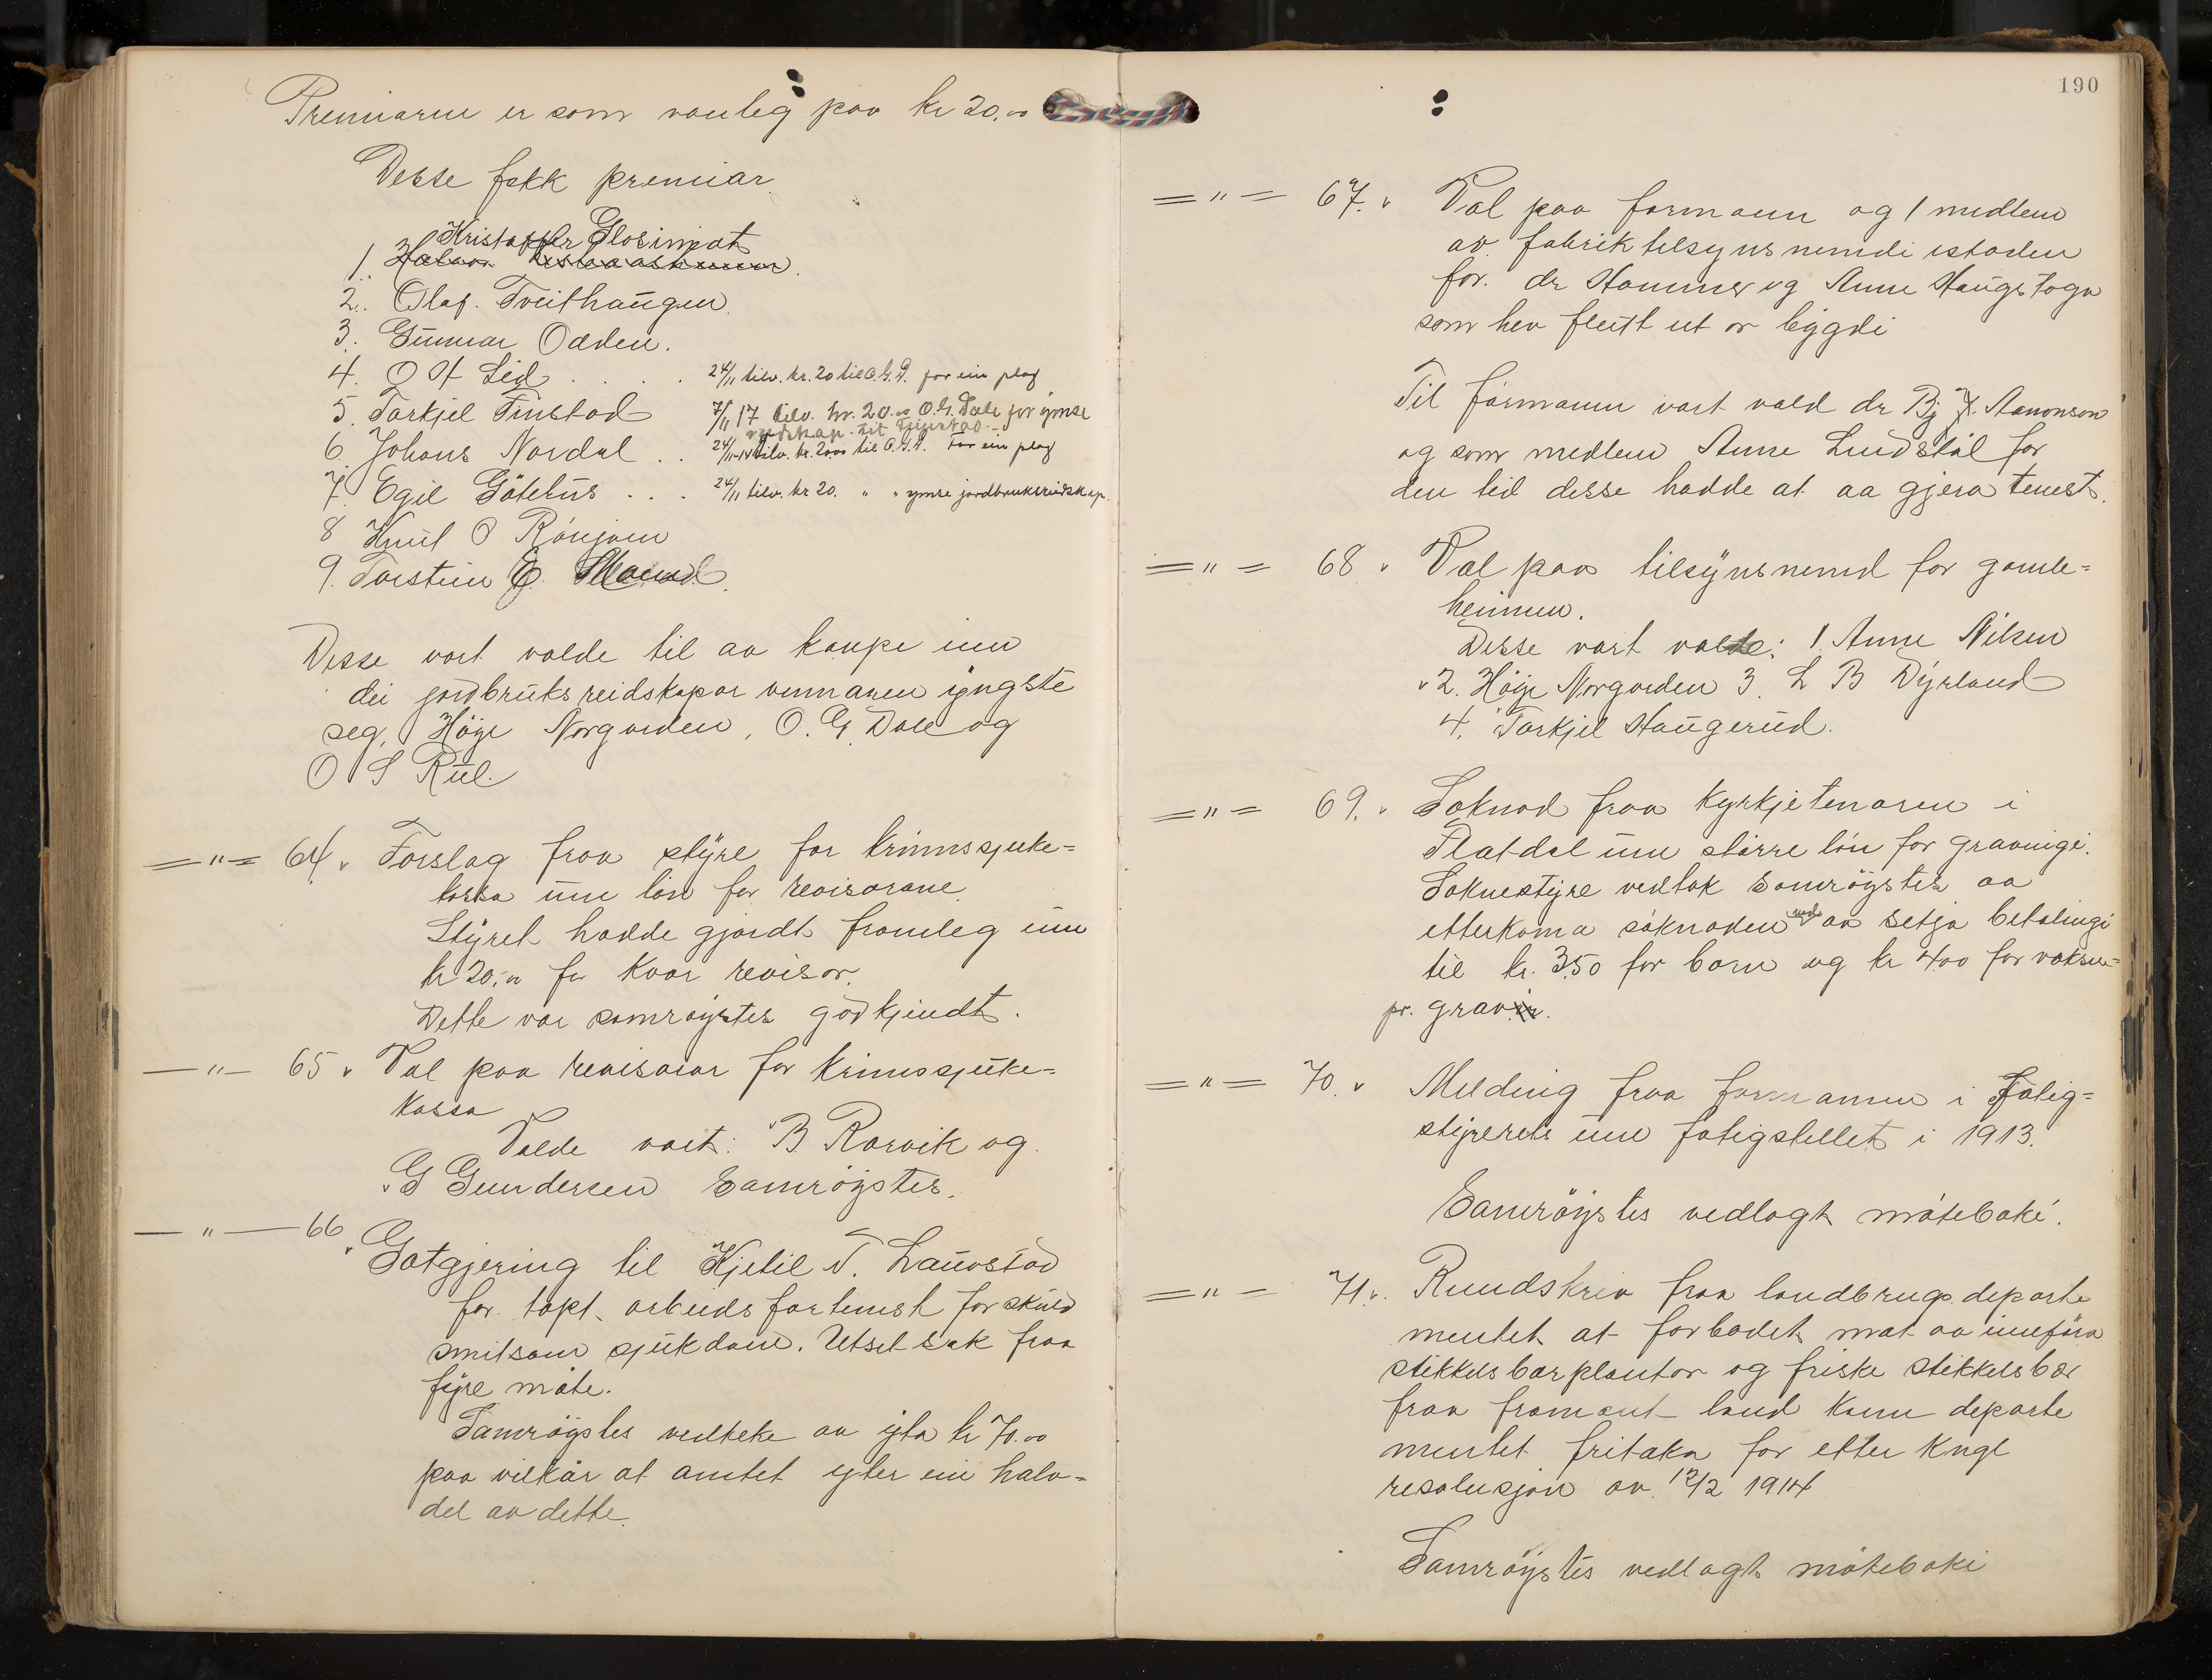 Premiarne er som vanleg paa kr 20.00
Desse fekk premiar
Kristoffer Glosimot
1. Halvor
2. Olaf. Tveithaugen.
3. Gunnar Odden.
4. O H Lid . . . . 24/11 tilv. kr. 20 til O. G. D. for ein plog
5. Torkjel Finstad 7/11 17 tilv. kr. 20.00 O. G. Dale for ymse
reidskap til Finstad
6. Johans Nordal . . 24/11-14 tilv. kr. 20.00 til O. G. D. For ein plog
7. Egil Götehus . . . 24/11 tilv. kr 20. " " ymse jordbruksreidskap.
8 Knut O Rönjom
9. Torstein
Desse vart valde til aa kaupe inn
dei jordbruks reidskapar vinnaren yngste
seg, Höye Norgarden, O. G. Dale og
O S Rul.
— " — 64. Forslag fraa styre for krinssjuke-
kassa um lön for revisorane.
Styret hadde gjordt framleg um
kr 20,00 for kvar revisor.
Dette var samröystes godkjendt.
— " — 65 Val paa revisorar for krinssjuke-
kassa
Valde vart: B Rorvik og
G Gundersen Samröystes.
— " — 66
Gotgjering til Kjetil T. Lauvstad
for tapt arbeidsfortenest for skuld
smitsam sjukdom. Utset sak fraa
fyre möte.
Samröystes vedteke aa yta kr 70.00
paa vilkår at amtet yter ein halv-
del av dette.
190
= " = 67. Val paa formann og 1 medlem
av fabriktilsynsnemdi istaden
for dr Hammer og Anne Haugstoga
som hev flutt ut or bygdi
Til formann vart vald dr Bj J. Aanonson
og som medlem Anne Lindstöl for
den tid desse hadde at aa gjera tenest.
= " = 68 Val paa tilsynsnemd for gamle-
heimen.
Desse vart valde: 1. Anne Nilsen
2. Höye Norgarden 3. L B Dyrland
4. Torkjel Haugerud.
= " = 69. Soknad fraa kyrkjetenaren i
Flatdal um större lön for gravingi.
Soknestyre vedtok samröystes aa
etterkoma söknaden med aa setja betalingi
til kr. 3.50 for born og kr 4.00 for voksne
pr. grav.
= " = 70. Melding fraa formannen i Fatig-
styreets um fatigstellet i 1913.
Samröystes vedlagt möteboki.
= " = 71. Rundskriv fraa landbrugsdeparte
mentet at forbodet mot aa innföra
stikkelsbærplantor og friske stikkelsbær
fraa framant land kunn departe
mentet fritaka for etter Kngl
resolusjon av 12/2 1914
Samröystes vedlagt möteboki